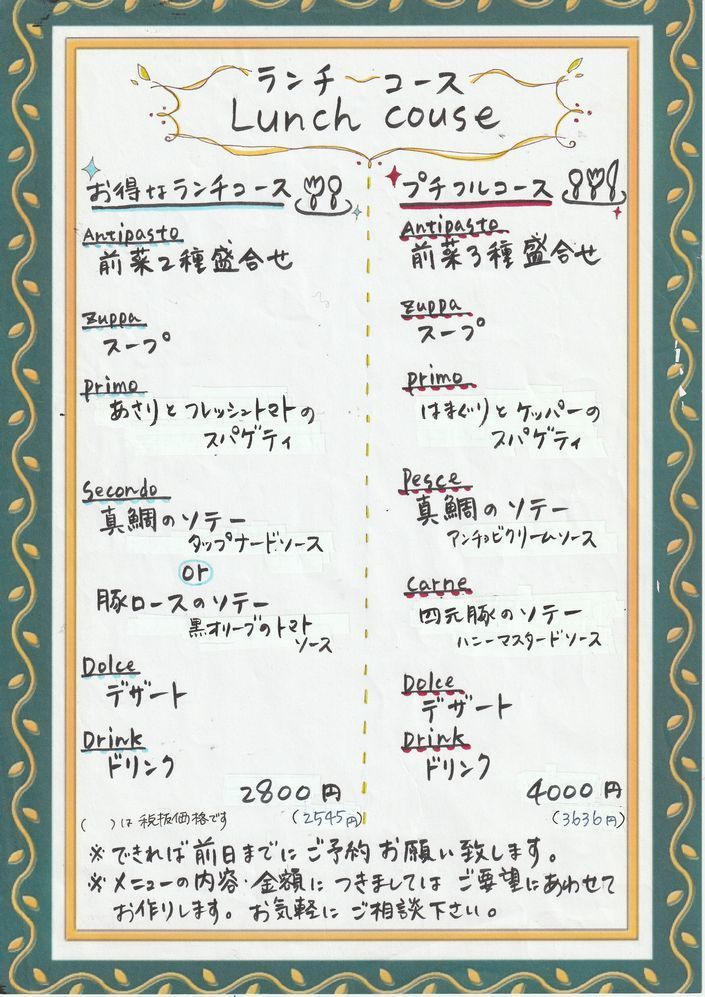 ランチ コース
Lunch couse
お得なランチコース
Antipasto
前菜2種盛合せ
zuppa
スープ
primo
あさりとフレッシュトマトの
スパゲティ
Secondo
真鯛のソテー
タップナードソース
or
豚ロースのソテー
黒オリーブのトマト
ソース
Dolce
デザート
Drink
ドリンク
2800円
(2545円)
( )は税抜価格です
プチフルコース
Antipasto
前菜3種盛合せ
zuppa
スープ
primo
はまぐりとケッパーの
スパゲティ
Pesce
真鯛のソテー
アンチョビクリームソース
carne
四元豚のソテー
ハニーマスタードソース
Dolce
デザート
Drink
ドリンク
4000円
(3636円)
※できれば前日までにご予約お願い致します。
※メニューの内容・金額につきましてはご要望にあわせて
お作りします。お気軽にご相談下さい。